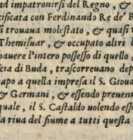 ad impatronirsi del Regno, &
ificata con Ferdinando Re de'
i trouaua molestato, & quasi
Themisuar, & occupato altri
auere l'intero possesso di quello
tica di Buda, trascorreuano de
apo a quella impresa il S. Gioua
& Germani, & essendo preuenu
quale, il S. Castaldo uolendo ess
la riua del fiume a tutti questa